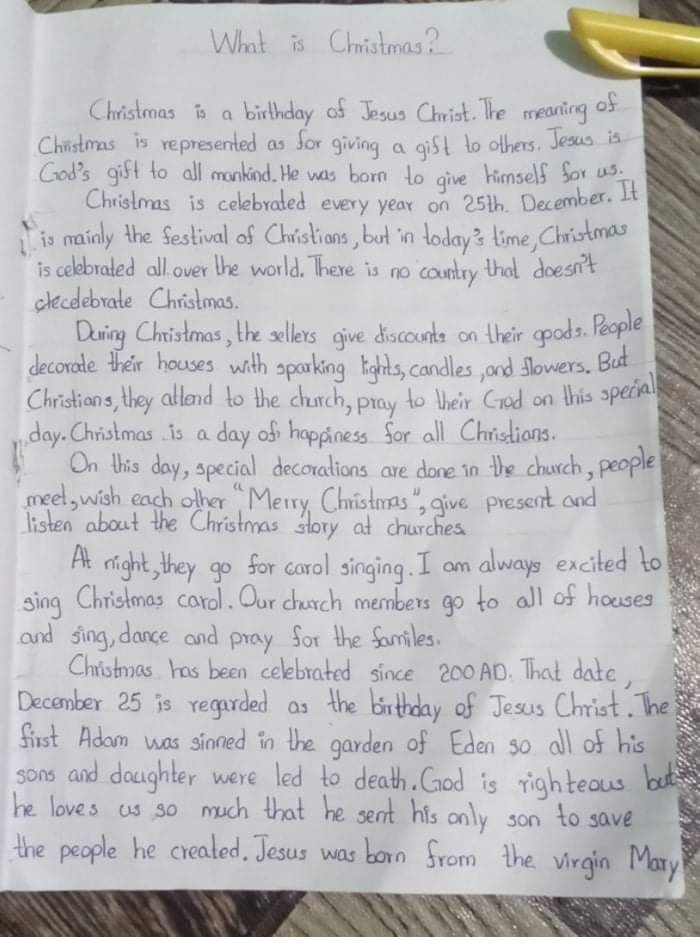 What is Christmas?
Christmas is a birthday of Jesus Christ. The meaning of
Christmas is represented as for giving a gift to others. Jesus is
God's gift to all mankind. He was born to give himself for us.
Christmas is celebrated every year on 25th. December. It
is mainly the festival of Christians, but in today's time, Christmas
is celebrated all over the world. There is no country that doesn't
celebrate Christmas.
During Christmas, the sellers give discounts on their goods. People
decorate their houses with sparking lights, candles, and flowers. But
Christians, they attend to the church, pray to their God on this special
day. Christmas is a day of happiness for all Christians.
On this day, special decorations are done in the church, people
meet, wish each other "Merry Christmas", give present and
listen about the Christmas story at churches.
At night, they go for carol singing. I am always excited to
sing Christmas carol. Our church members go to all of houses
and sing, dance and pray for the familes.
Christmas has been celebrated since 200 AD. That date,
December 25 is regarded as the birthday of Jesus Christ. The
first Adam was sinned in the garden of Eden so all of his
sons and daughter were led to death. God is righteous but
he loves us so much that he sent his only son to save
the people he created. Jesus was born from the virgin Mary